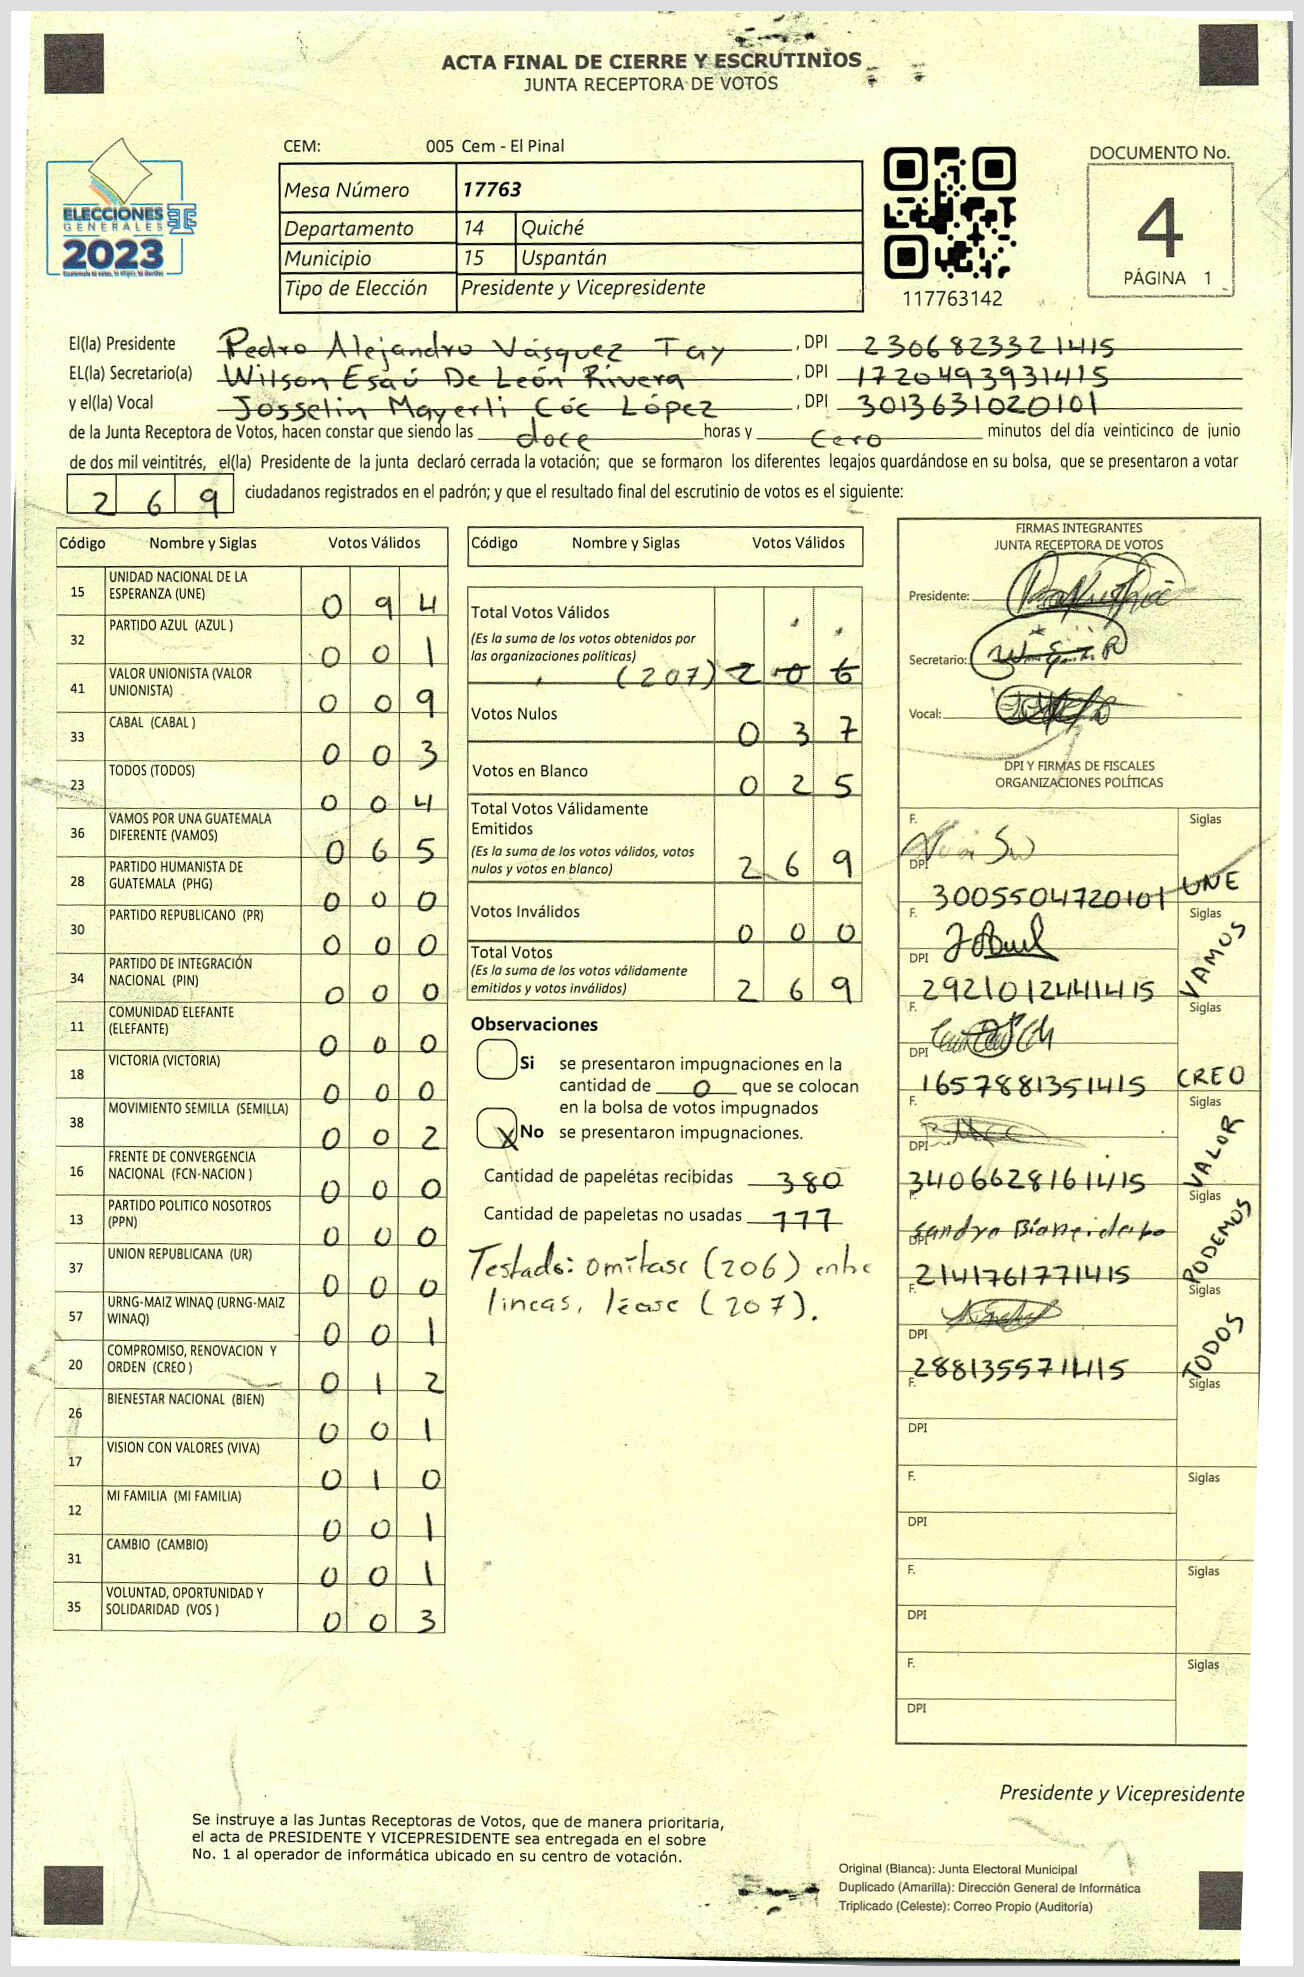 ACTA FINAL DE CIERRE Y ESCRUTINIOS
JUNTA RECEPTORA DE VOTOS
ELECCIONES
GENERALES
2023
CEM: 005 Cem - El Pinal
Mesa Número 17763
Departamento 14 Quiché
Municipio 15 Uspantán
Tipo de Elección Presidente y Vicepresidente
117763142
DOCUMENTO No.
4
PÁGINA 1
El(la) Presidente Pedro Alejandro Vásquez Tay, DPI 2306823321415
EL(la) Secretario(a) Wilson Esaú De León Rivera, DPI 1720493931415
y el(la) Vocal Josselin Mayerli Cóc López, DPI 3013631020101
de la Junta Receptora de Votos, hacen constar que siendo las doce horas y cero minutos del día veinticinco de junio
de dos mil veintitrés, el(la) Presidente de la junta declaró cerrada la votación; que se formaron los diferentes legajos guardándose en su bolsa, que se presentaron a votar
269 ciudadanos registrados en el padrón; y que el resultado final del escrutinio de votos es el siguiente:
Código Nombre y Siglas Votos Válidos
15 UNIDAD NACIONAL DE LA ESPERANZA (UNE) 094
32 PARTIDO AZUL (AZUL ) 001
41 VALOR UNIONISTA (VALOR UNIONISTA) 009
33 CABAL (CABAL ) 003
23 TODOS (TODOS) 004
36 VAMOS POR UNA GUATEMALA DIFERENTE (VAMOS) 065
28 PARTIDO HUMANISTA DE GUATEMALA (PHG) 000
30 PARTIDO REPUBLICANO (PR) 000
34 PARTIDO DE INTEGRACIÓN NACIONAL (PIN) 000
11 COMUNIDAD ELEFANTE (ELEFANTE) 000
18 VICTORIA (VICTORIA) 000
38 MOVIMIENTO SEMILLA (SEMILLA) 002
16 FRENTE DE CONVERGENCIA NACIONAL (FCN-NACION ) 000
13 PARTIDO POLITICO NOSOTROS (PPN) 000
37 UNION REPUBLICANA (UR) 000
57 URNG-MAIZ WINAQ (URNG-MAIZ WINAQ) 001
20 COMPROMISO, RENOVACION Y ORDEN (CREO ) 012
26 BIENESTAR NACIONAL (BIEN) 001
17 VISION CON VALORES (VIVA) 010
12 MI FAMILIA (MI FAMILIA) 001
31 CAMBIO (CAMBIO) 001
35 VOLUNTAD, OPORTUNIDAD Y SOLIDARIDAD (VOS ) 003
Código Nombre y Siglas Votos Válidos
Total Votos Válidos
(Es la suma de los votos obtenidos por
las organizaciones políticas)
(207) 206
Votos Nulos 037
Votos en Blanco 025
Total Votos Válidamente
Emitidos
(Es la suma de los votos válidos, votos
nulos y votos en blanco) 269
Votos Inválidos 000
Total Votos
(Es la suma de los votos válidamente
emitidos y votos inválidos) 269
Observaciones
Si se presentaron impugnaciones en la
cantidad de 0 que se colocan
en la bolsa de votos impugnados
X No se presentaron impugnaciones.
Cantidad de papeletas recibidas 380
Cantidad de papeletas no usadas 111
Testado: omítase (206) entre
líneas, léase (207).
FIRMAS INTEGRANTES
JUNTA RECEPTORA DE VOTOS
Presidente:
Secretario:
Vocal:
DPI Y FIRMAS DE FISCALES
ORGANIZACIONES POLÍTICAS
F. Siglas
DPI 3005504720101 UNE
F. Siglas
DPI 2921012441415 VAMOS
F. Siglas
DPI 1657881351415 CREO
F. Siglas
DPI 3406628161415 VALOR
F. Siglas
DPI 2141761771415 PODEMOS
F. Siglas
DPI 288135571415 TODOS
F. Siglas
DPI
F. Siglas
DPI
F. Siglas
DPI
F. Siglas
DPI
Presidente y Vicepresidente
Se instruye a las Juntas Receptoras de Votos, que de manera prioritaria,
el acta de PRESIDENTE Y VICEPRESIDENTE sea entregada en el sobre
No. 1 al operador de informática ubicado en su centro de votación.
Original (Blanca): Junta Electoral Municipal
Duplicado (Amarilla): Dirección General de Informática
Triplicado (Celeste): Correo Propio (Auditoría)